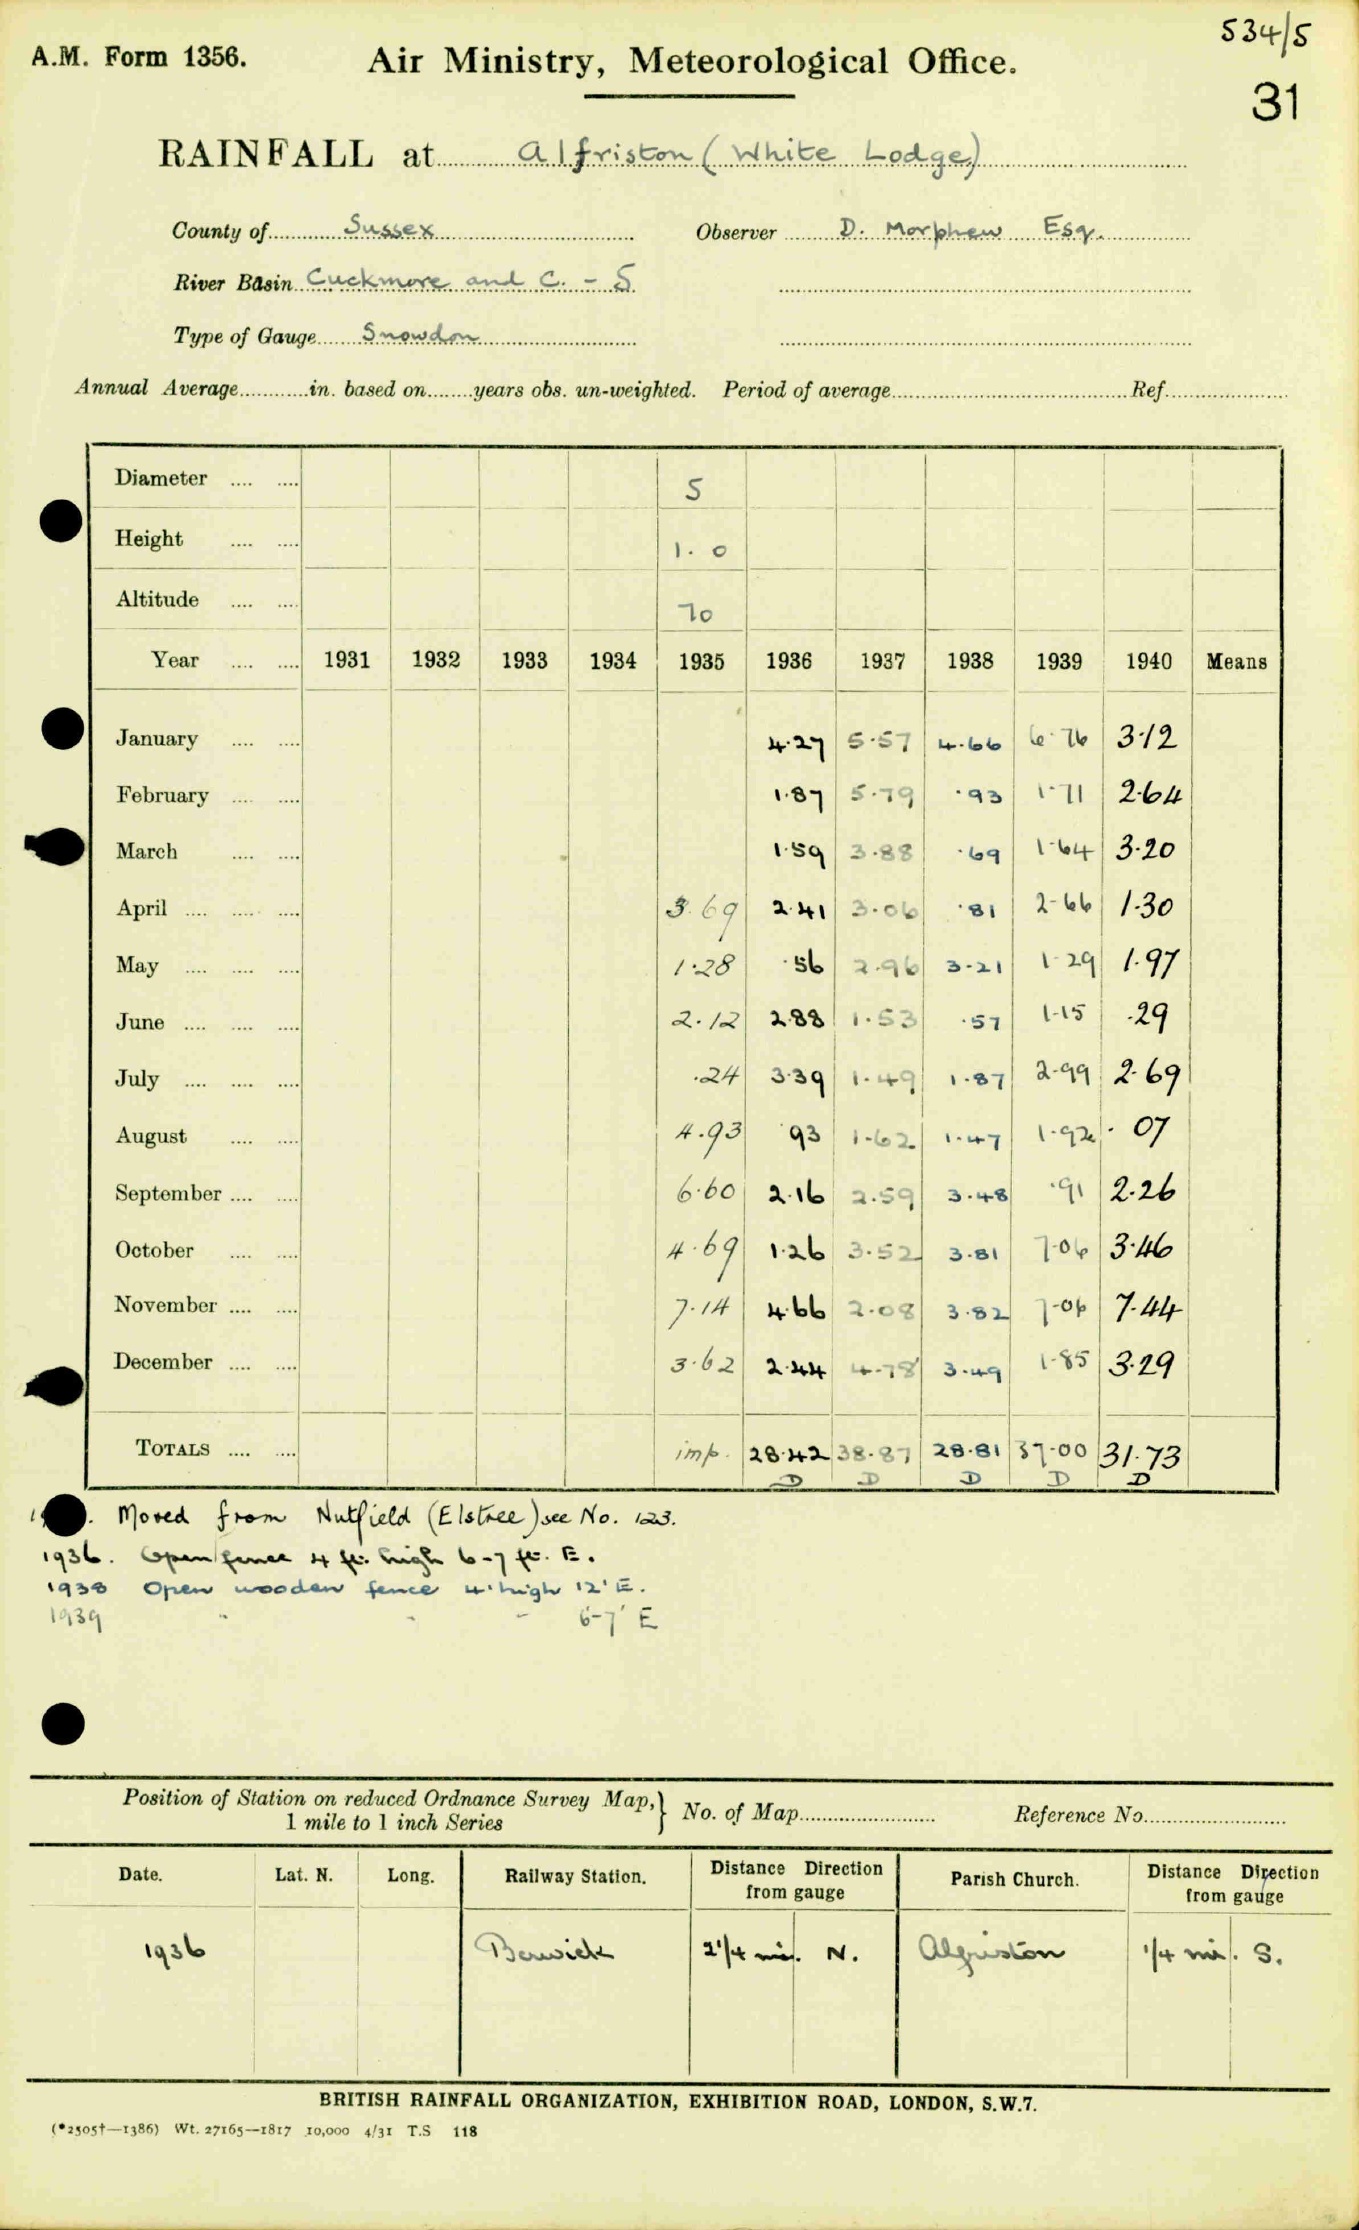 534/5
A.M. Form 1356. Air Ministry, Meteorological Office.
31
RAINFALL at Alfriston (White Lodge)
County of Sussex Observer D. Morphew Esq.
River Basin Cuckmere and C. - S
Type of Gauge Snowdon
Annual Average in. based on years obs. un-weighted. Period of average Ref.
Diameter 5
Height 1.0
Altitude 70
Year 1931 1932 1933 1934 1935 1936 1937 1938 1939 1940 Means
January 4.27 5.57 4.66 6.76 3.12
February 1.87 5.79 .93 1.71 2.64
March 1.59 3.88 .69 1.64 3.20
April 3.69 2.41 3.06 .81 2.66 1.30
May 1.28 .56 2.96 3.21 1.29 1.97
June 2.12 2.88 1.53 .57 1.15 .29
July .24 3.39 1.49 1.87 2.99 2.69
August 4.93 .93 1.62 1.47 1.92 .07
September 6.60 2.16 2.59 3.48 .91 2.26
October 4.69 1.26 3.52 3.81 7.06 3.46
November 7.14 4.66 2.08 3.82 7.06 7.44
December 3.62 2.44 4.78 3.49 1.85 3.29
TOTALS imp. 28.42 38.87 28.81 37.00 31.73
D D D D D
Moved from Nutfield (Elstree) see No. 123.
1936. Open fence 4 ft. high 6-7 ft. E.
1938 Open wooden fence 4' high 12' E.
1939 " " " 6-7' E
Position of Station on reduced Ordnance Survey Map,} No. of Map Reference No.
1 mile to 1 inch Series
Date. Lat. N. Long. Railway Station. Distance Direction Parish Church. Distance Direction
from gauge from gauge
1936 Berwick 2 1/4 mi. N. Alfriston 1/4 mi. S.
BRITISH RAINFALL ORGANIZATION, EXHIBITION ROAD, LONDON, S.W.7.
(*2505†—1386) Wt. 27165—1817 10,000 4/31 T.S 118